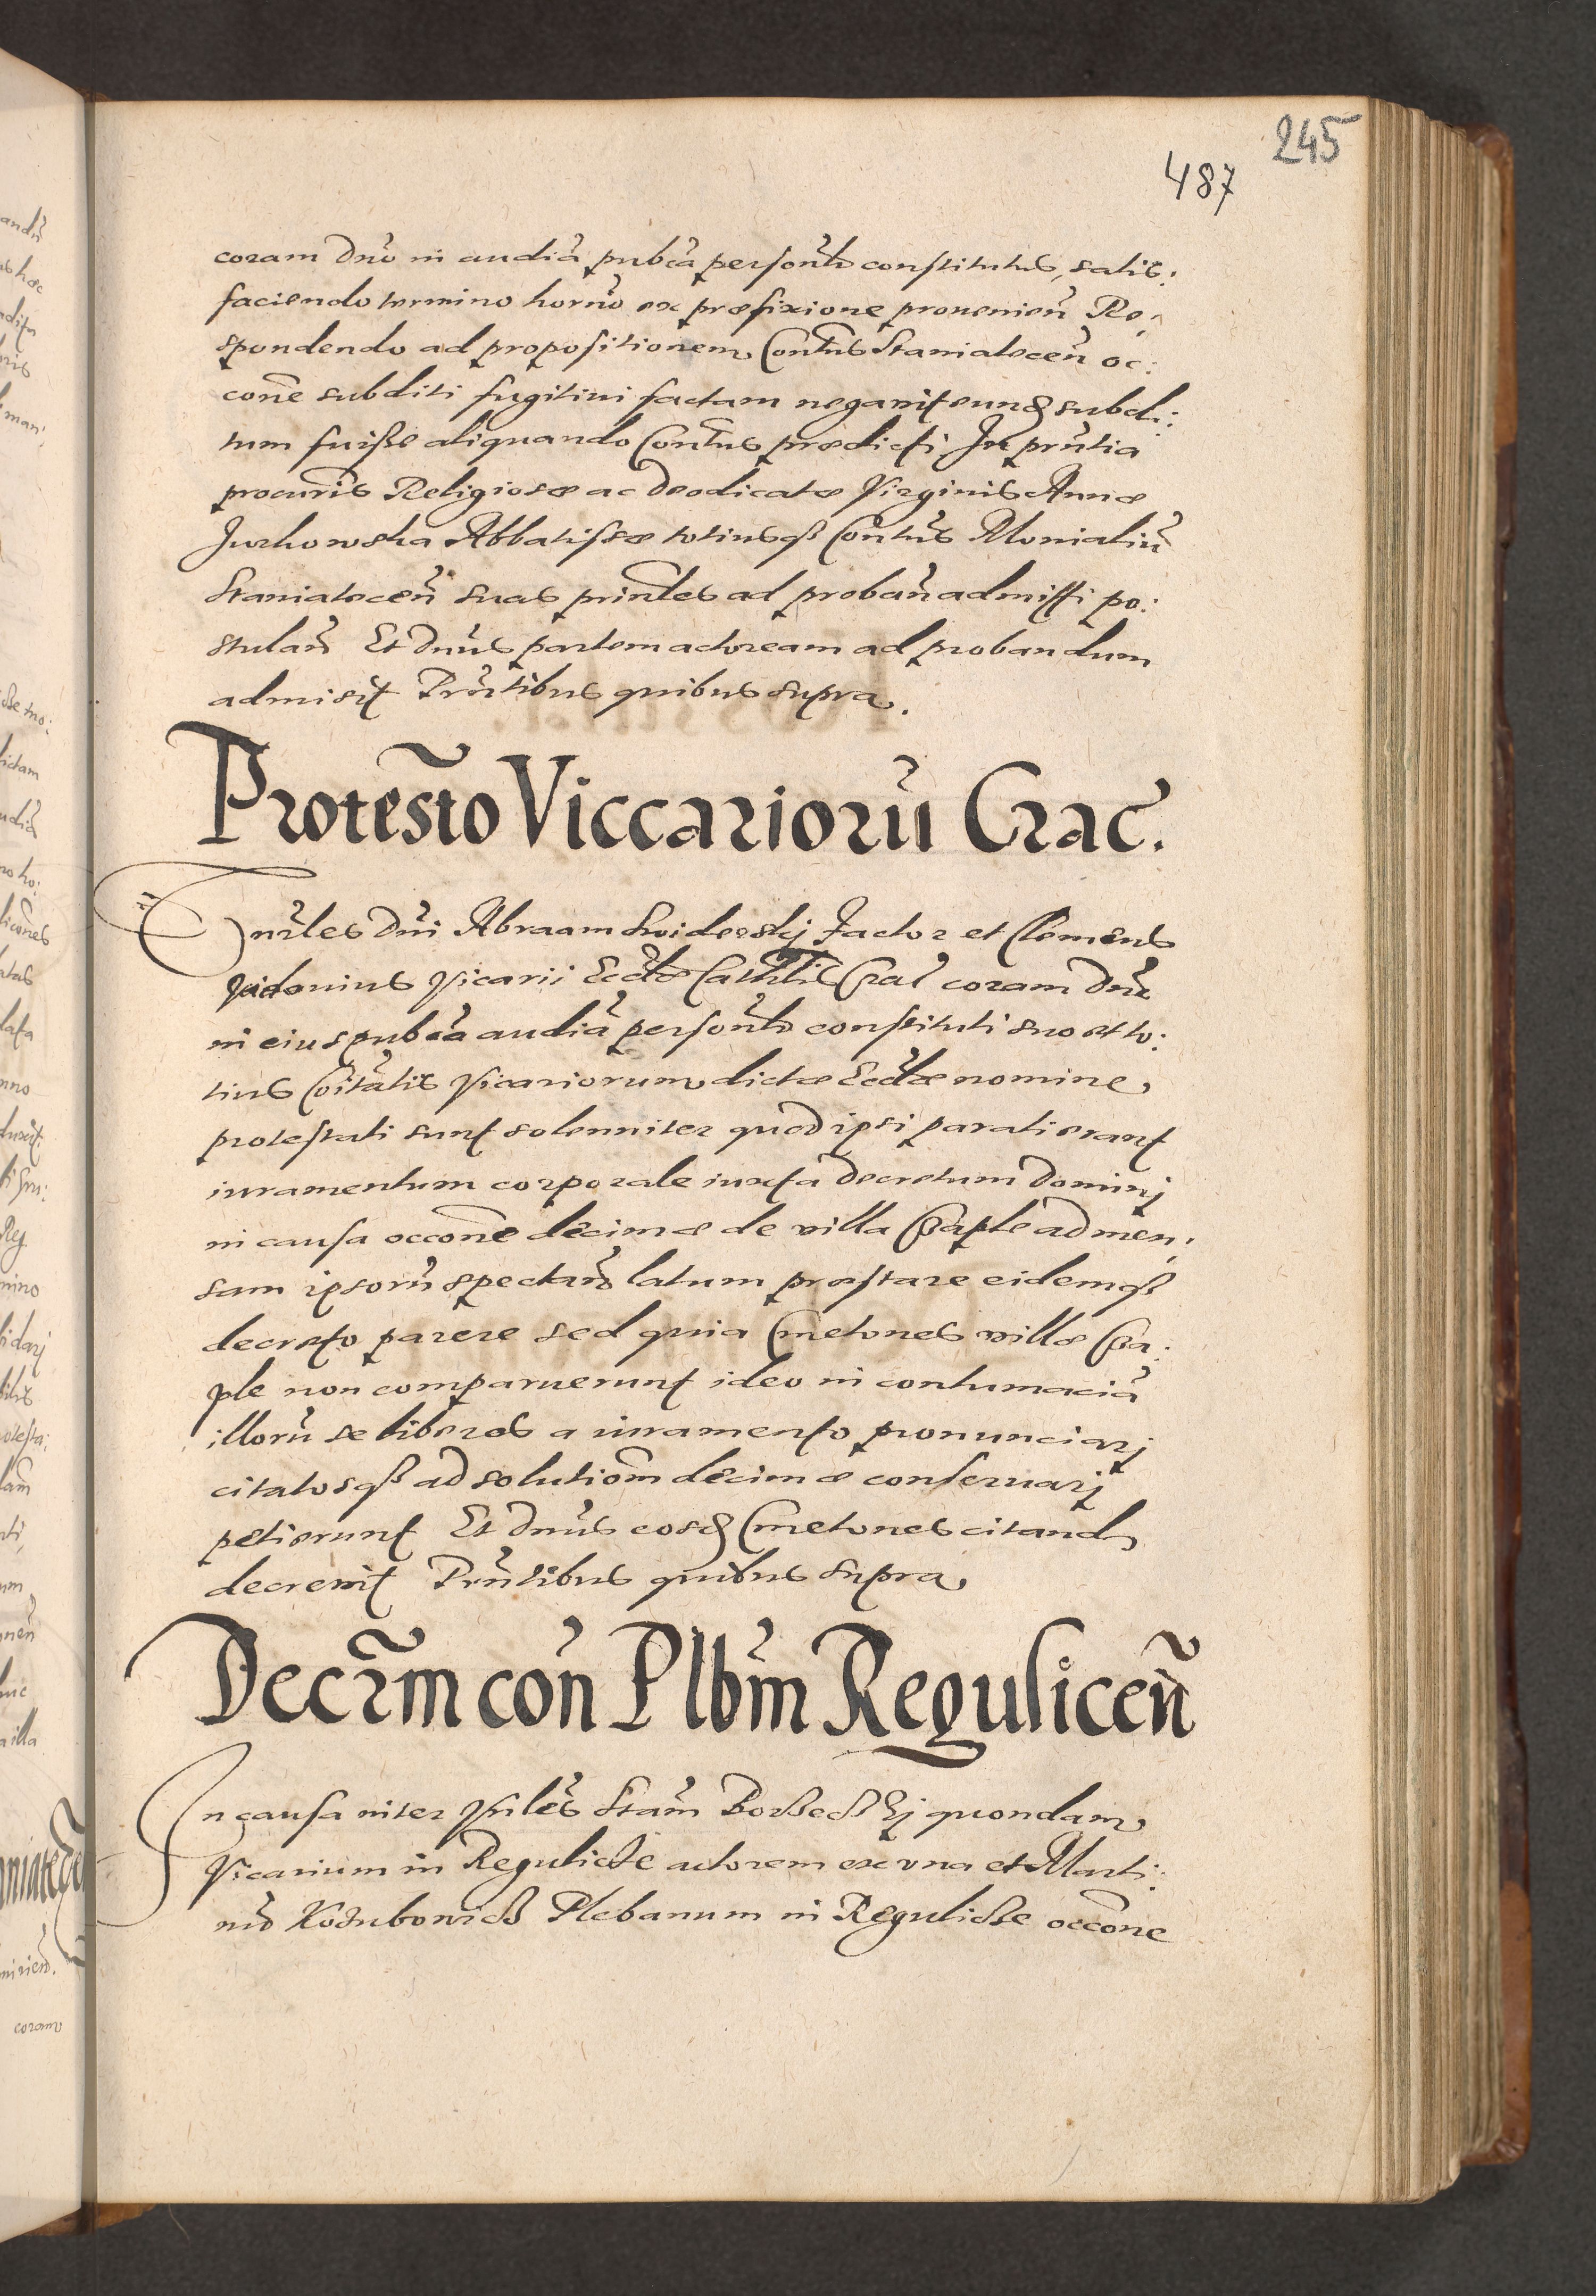 245
487
coram Dno in audia publca personlr constitutus, satis:
faciendo termino horno ex præfixione prouenien Re:
spondendo ad propositionem Contus Staniatecen oc:
cone subditi fugitiui factam negauit eund subdi:
tum fuisse aliquando Contus prædicti In prntia
procuris Religiosæ ac deodicatæ Virginis Annæ
Jurkowska Abbatissæ totiusqß Contus Monialiũ
Staniatecen suas ad proban admitti po:
stulan Et Dnus partem actoream ad probandum
admisit Prntibus quibus supra.
Protesto Viccarioru Crac.
Dni Abraam et Clemens
Vicarii Ecclæ Cathlis Crac coram Dno
in eius publca audia personlr constituti suo et to:
tius Coitatis Vicariorum dictæ Ecclæ nomine,
protestati sunt solenniter quod ipsi parati erant
iuramentum corporale iuxta decretum Dominj
in causa occone decimæ de villa Czaple ad men:
sam ipsorũ spectan latum præstare eidemqß
decreto parere sed quia Cmetones villæ Cza:
ple non comparuerunt ideo in contumaciã
illorũ se liberos a iuramento pronunciarj
citatosqß ad solutiom decimæ conseruarj
petierunt Et Dnus eosd Cmetones citand
decreuit Prntibus quibus supra,
Decrm con Plbm Regulicen
In causa inter Stam quondam
Vicarium in Regulicze actorem ex vna et Marti:
nũ Kozubowicz Plebanum in Regulicze occone